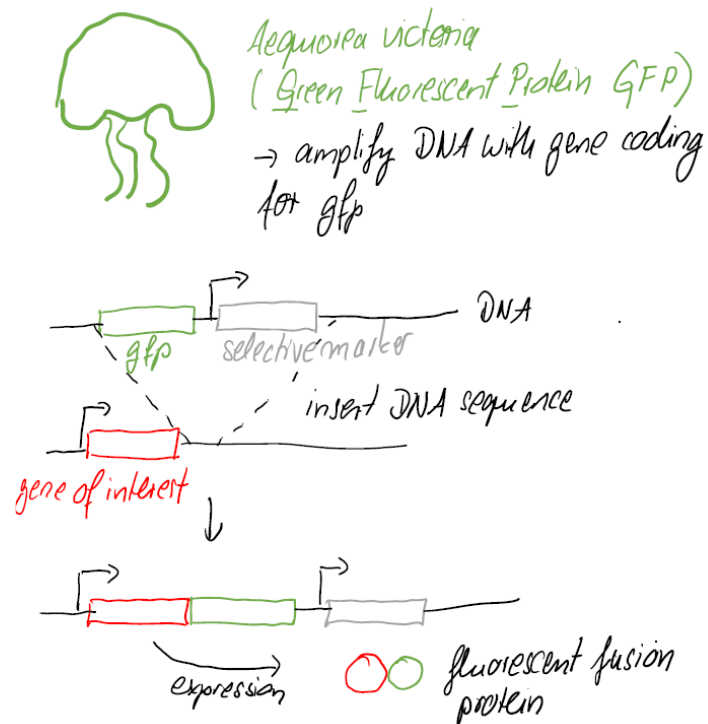 Aequorea victoria
(Green Fluorescent Protein GFP)
→ amplify DNA with gene coding
for gfp
DNA
gfp
selective marker
insert DNA sequence
gene of interest
expression
fluorescent fusion
protein